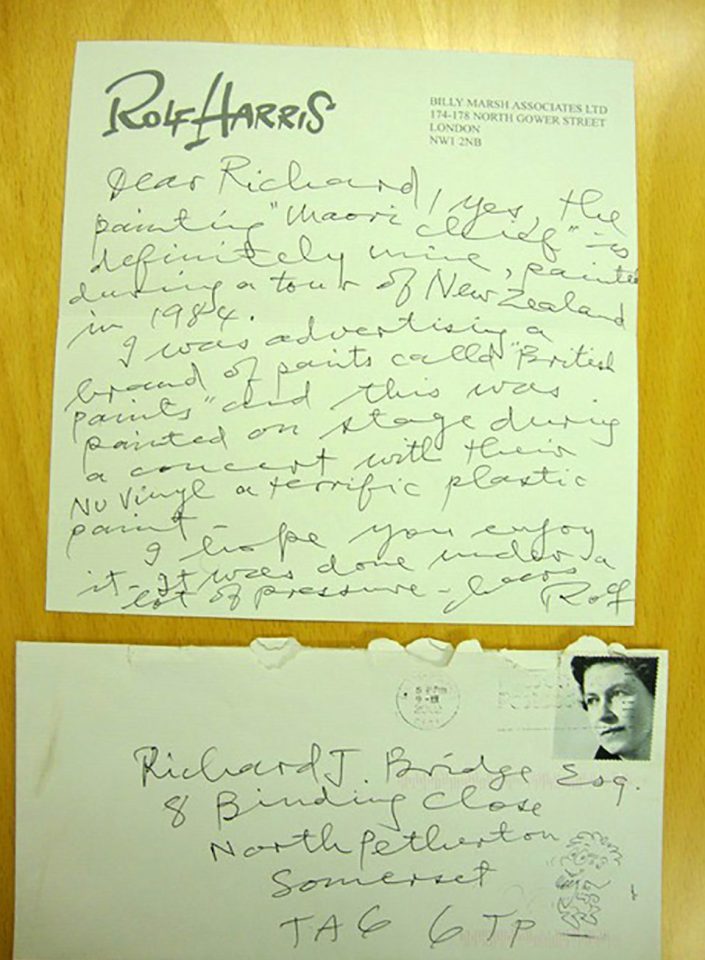 ROLF HARRIS
BILLY MARSH ASSOCIATES LTD
174-178 NORTH GOWER STREET
LONDON
NW1 2NB
Dear Richard, yes, the
painting "Maori Chief" is
definitely mine, painted
during a tour of New Zealand
in 1984.
I was advertising a
brand of paints called "British
paints" and this was
painted on stage during
a concert with their
Nu Vinyl a terrific plastic
paint.
I hope you enjoy
it - It was done under a
lot of pressure -
Rolf
Richard J. Bridge Esq.
8 Binding Close
North Petherton
Somerset
TA6 6TP